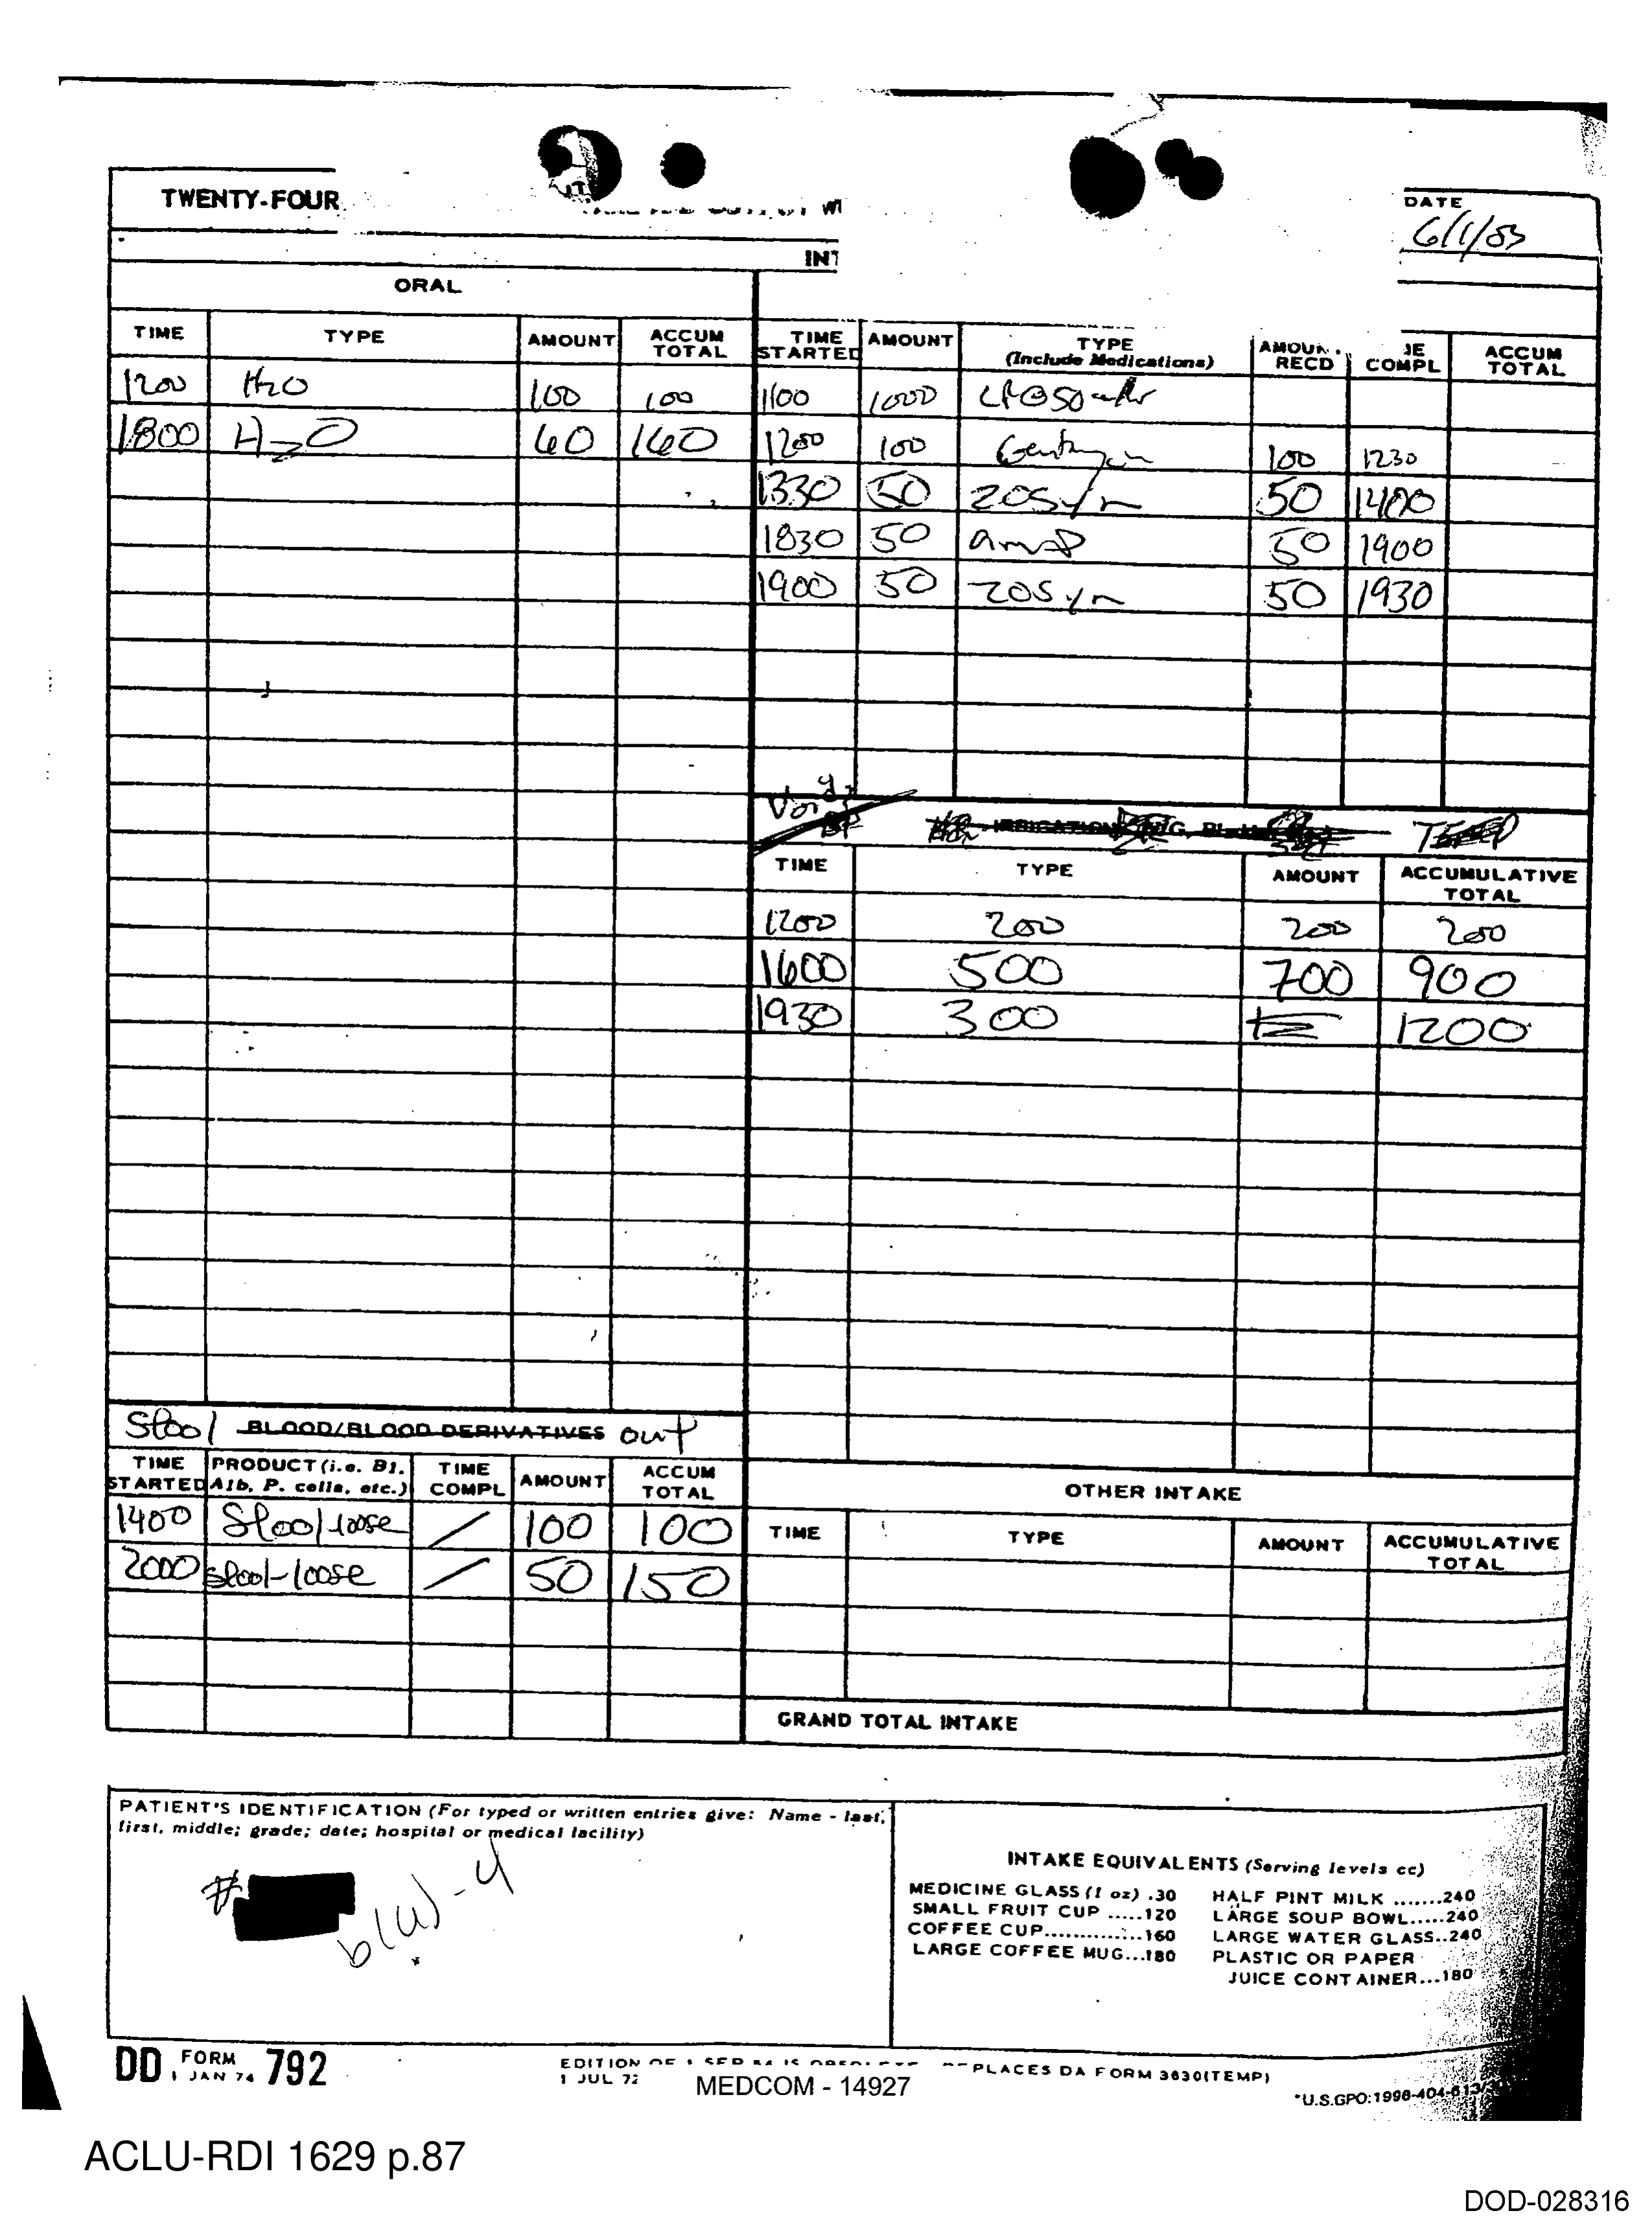 TWENTY-FOUR
DATE
6/1/03
ORAL
TIME TYPE AMOUNT ACCUM TOTAL
1200 H2O 100 100
1800 H2O 60 160
TIME STARTED AMOUNT TYPE (Include Medications) RECD COMPL ACCUM TOTAL
1100 1000
1200 100 100 1230
1330 50 Zosyn 50 1400
1830 50 amp 50 1900
1900 50 Zosyn 50 1930
TIME TYPE AMOUNT ACCUMULATIVE TOTAL
1200 200 200 200
1600 500 700 900
1930 300 1200
Stool BLOOD/BLOOD DERIVATIVES out
TIME STARTED PRODUCT (i.e. Bl. Alb, P. cells, etc.) TIME COMPL AMOUNT ACCUM TOTAL
1400 Stool-loose / 100 100
2000 stool-loose / 50 150
OTHER INTAKE
TIME TYPE AMOUNT ACCUMULATIVE TOTAL
GRAND TOTAL INTAKE
PATIENT'S IDENTIFICATION (For typed or written entries give: Name - last,
first, middle; grade; date; hospital or medical facility)
#
b(6)-4
INTAKE EQUIVALENTS (Serving levels cc)
MEDICINE GLASS (1 oz) .30 HALF PINT MILK .......240
SMALL FRUIT CUP .....120 LARGE SOUP BOWL.....240
COFFEE CUP.............160 LARGE WATER GLASS..240
LARGE COFFEE MUG...180 PLASTIC OR PAPER
JUICE CONTAINER...180
DD FORM 1 JAN 74 792
EDITION OF 1 SEP 54 IS OBSOLETE REPLACES DA FORM 3630(TEMP)
1 JUL 72
MEDCOM - 14927
*U.S.GPO:1998-404-613/
ACLU-RDI 1629 p.87
DOD-028316